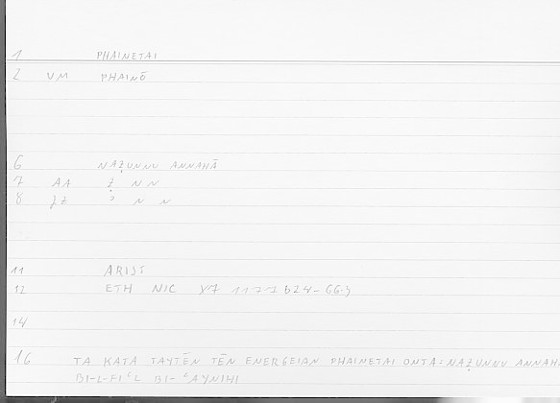 1 PHAINETAI
2 VM PHAINŌ
6 NAẒUNNU ANNAHĀ
7 AA Ẓ N N
8 ẓ N N
11 ARIST
12 ETH NIC X7 1173 b24-
14
16 TA KATA TAYTĒN TĒN ENERGEIAN PHAINETAI ONTA: NAẒUNNU ANNAH
BI-L-FIʿL BI-ʿAYNIHI